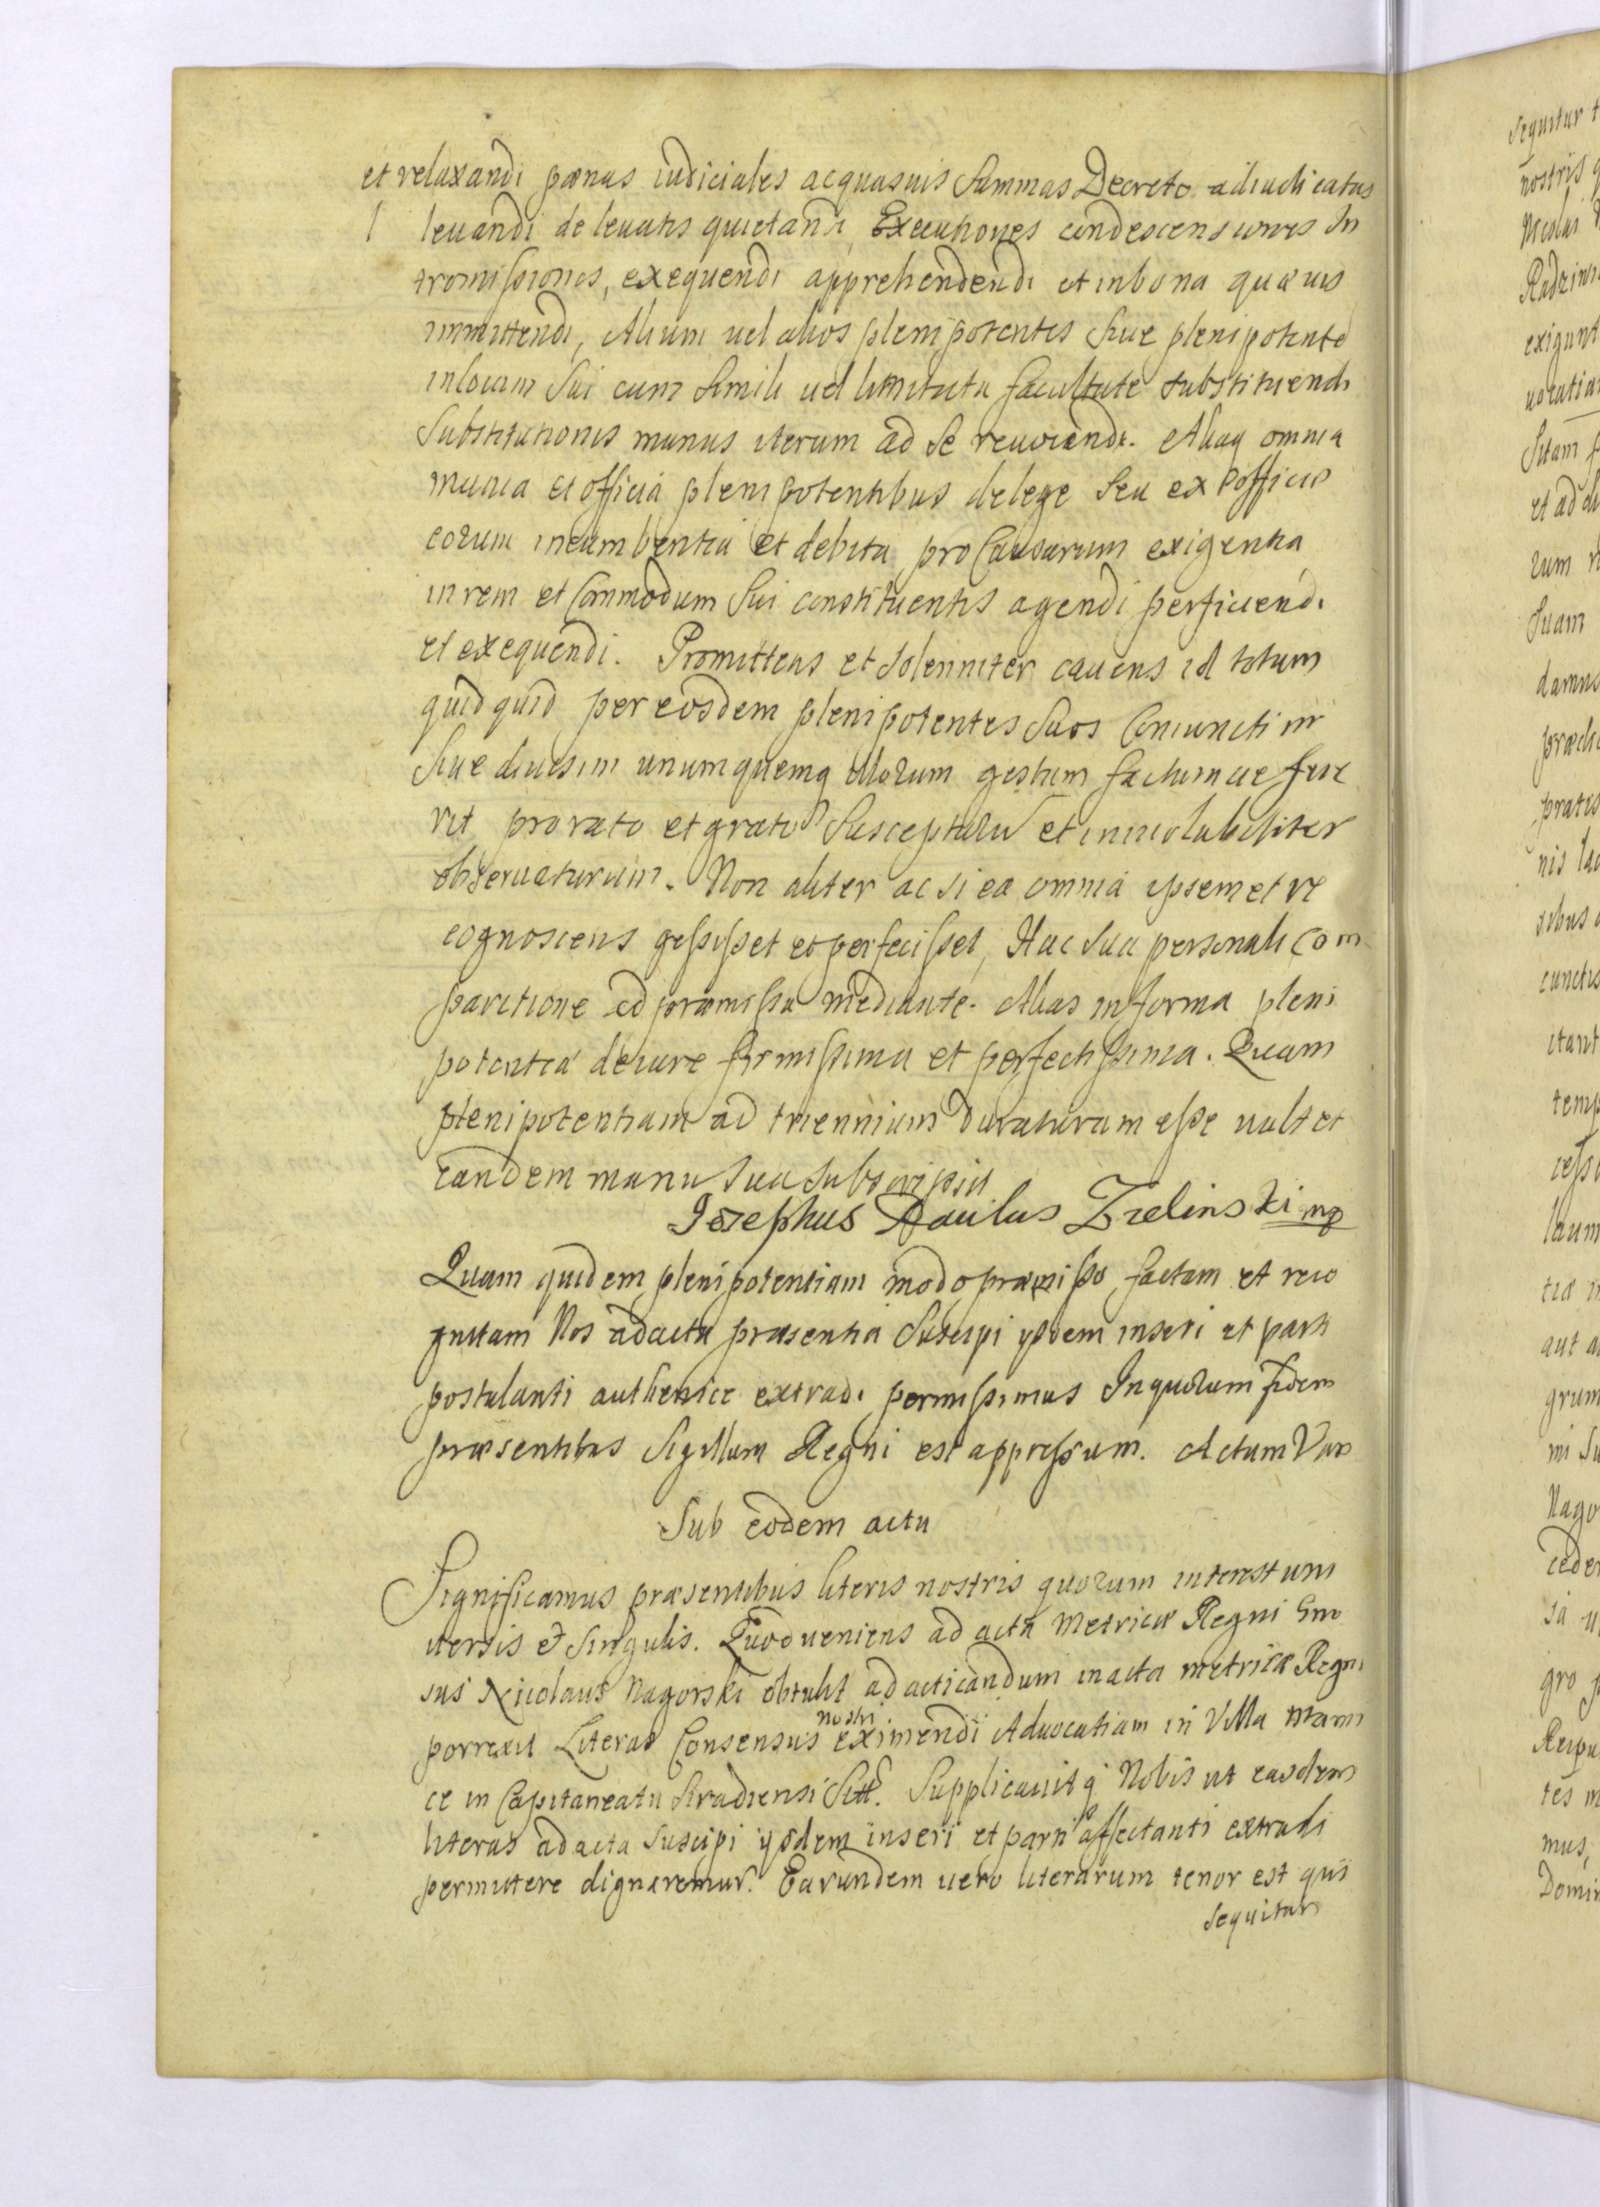 et relaxandi pœnas iudiciales acquasuis Summas Decreto adiudicatas
l levandi de levatis quietandi, Executiones condescensiones In
tromissiones, exequendi apprehendendi et in bona quæuis
immittendi, Alium uel alios plenipotentes siue plenipotente
inlocum Sui cum simili uel limitata facultate substituendi
Substitutionis munus iterum ad se reuocandi. Aliaq omnia
munia et officia plenipotentibus delege seu ex officio
eorum incumbentia et debita pro Causarum exigentia
in rem et Commodum Sui constituentis agendi perficiendi
et exequendi. Promittens et solenniter cauens id totum
quidquid per eosdem plenipotentes suos Coniunctim
siue diuisim unumquemq illorum gestum factumue fue
rit pro rato et grato Suscepturu et inuiolabiliter
obseruaturum. Non aliter ac si ea omnia ipsemet re
cognoscens gessisset et perfecisset, Hac sua personali com
paritione ad præmissa mediante. Alias in forma pleni
potentiæ de iure firmissima et perfectissima. Quam
plenipotentiam ad triennium duraturam esse uult et
eandem manu sua subscripsit
Josephus Paulus Zielinski mp
Quam quidem plenipotentiam modo præmisso factam et reco
gnitam Nos ad acta præsentia Suscipi ijsdem inseri et parti
postulanti authentice extradi permissimus In quorum fidem
præsentibus Sigillum Regni est appressum. Actum Var
Sub eodem actu
Significamus præsentibus literis nostris quorum interest uni
uersis et singulis. Quod ueniens ad acta Metricæ Regni Gno
sus Nicolaus Nagorski obtulit ad acticandum in acta metricæ Regni
porrexit Literas Consensus nostri eximendi Aduocatiam in Villa
ce in Capitaneatu Siradiensi Sitt. Supplicauitq Nobis ut easdem
literas ad acta suscipi ijsdem inseri et parti affectanti extradi
permittere dignaremur. Earundem uero literarum tenor est qui
sequitur